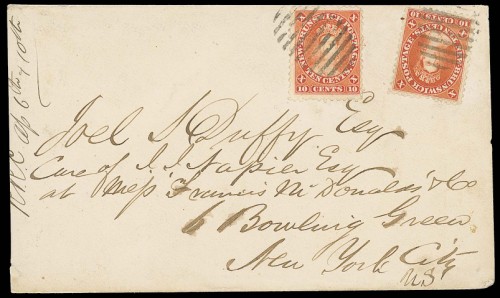 NEW BRUNSWICK POSTAGE
TEN CENTS
10 CENTS 10
10 CENTS 10
TEN CENTS
NEW BRUNSWICK POSTAGE
Joel S Duffy Esq
Care of J. J. Napier Esq
at Mess Francis McDonald & Co
6 Bowling Green
New York City
U.S